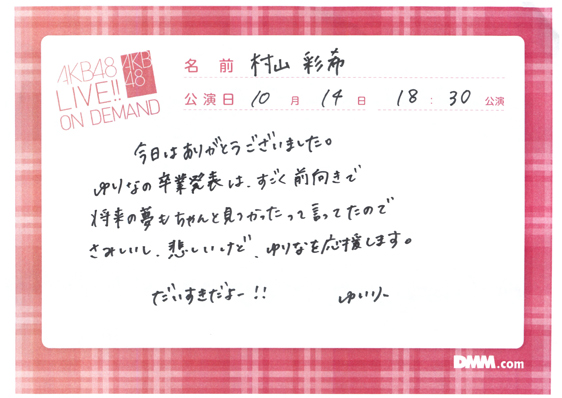 AKB48
LIVE!!
ON DEMAND
AKB
48
名前 村山 彩希
公演日 10 月 14 日 18 : 30 公演
今日はありがとうございました。
ゆりなの卒業発表は、すごく前向きで
将来の夢もちゃんと見つかったって言ってたので
さみしいし、悲しいけど、ゆりなを応援します。
だいすきだよー!! ゆいりー
DMM.com